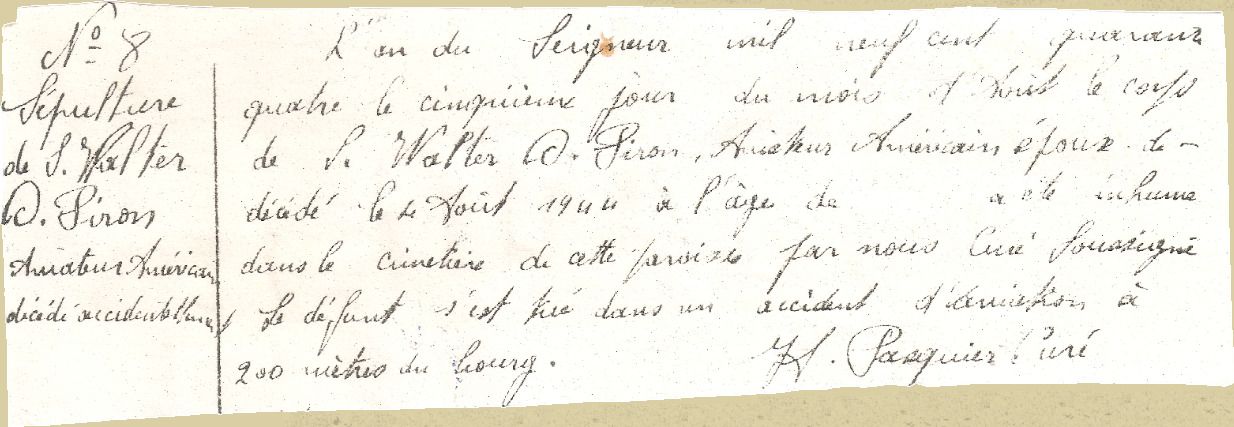 N° 8
Sépulture
de S. Walter
D. Siron
Aviateur Américain
décédé accidentellement
L'an du Seigneur mil neuf cent quarante
quatre le cinquième jour du mois d'Août le corps
de S. Walter D. Siron, Aviateur Américain époux de —
décédé le 4 Août 1944 à l'âge de a été inhumé
dans le cimetière de cette paroisse par nous Curé Soussigné
Le défunt s'est tué dans un accident d'aviation à
200 mètres du bourg.
H. Pasquier Curé